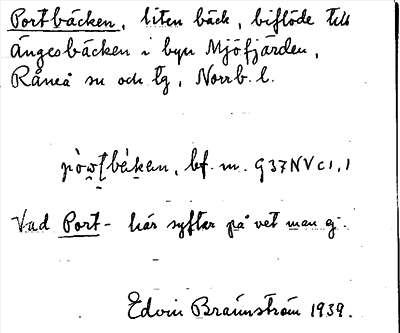 Portbäcken, liten bäck, biflöde till
Ängesbäcken i byn Mjöfjärden,
Råneå sn och tg, Norrb. l.
bf. m. G37NVc1,1
Vad Port- här syftar på vet man ej.
Edvin Brännström 1939.